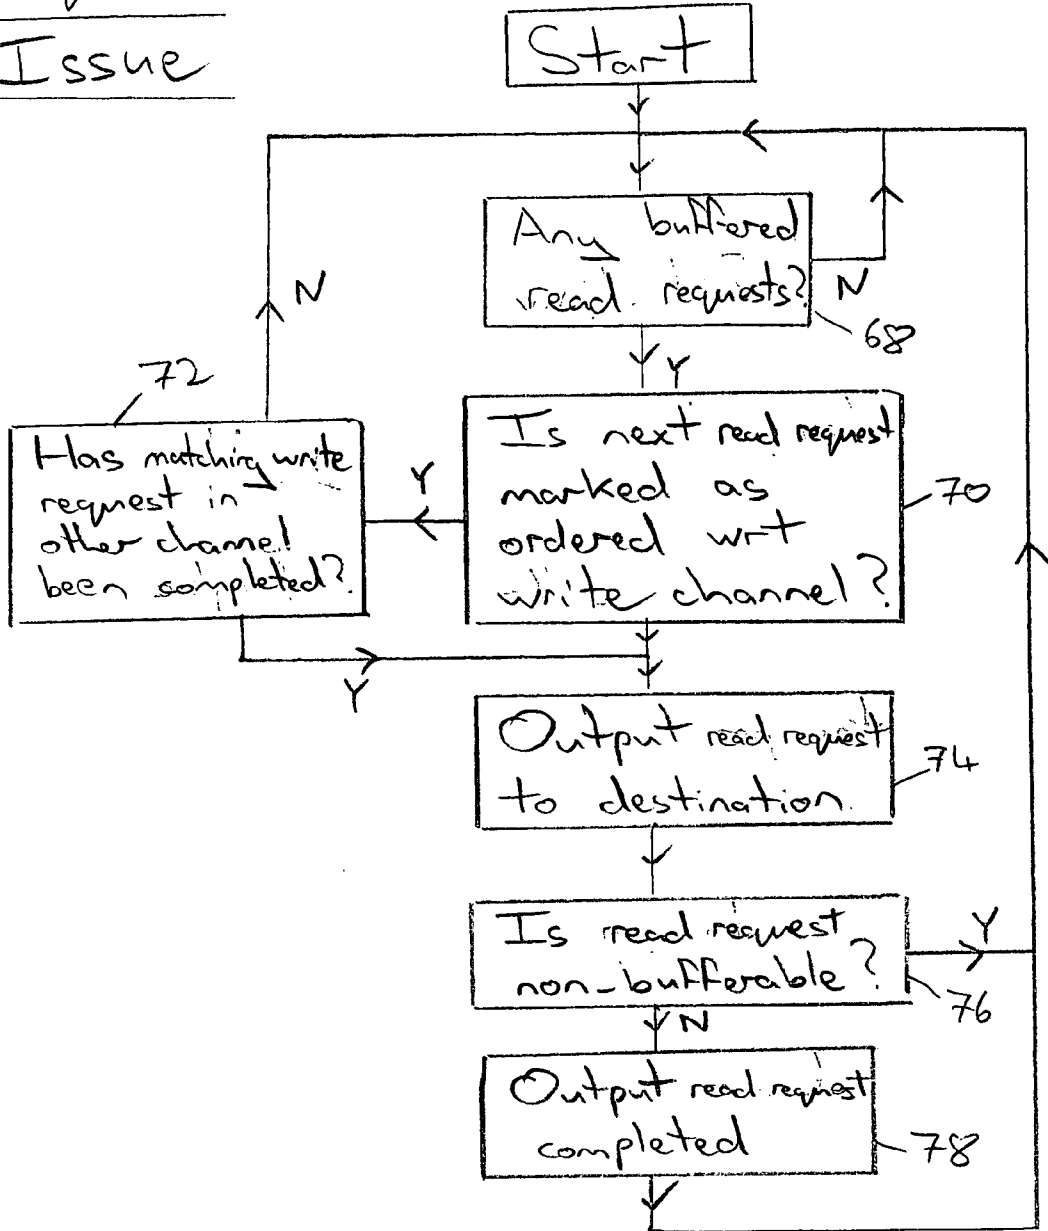 Issue
Start
Any buffered
read requests?
N
68
N
Y
72
Has matching write
request in
other channel
been completed?
Y
Is next read request
marked as
ordered wrt
write channel?
70
Y
Output read request
to destination
74
Is read request
non-bufferable?
Y
76
N
Output read request
completed
78